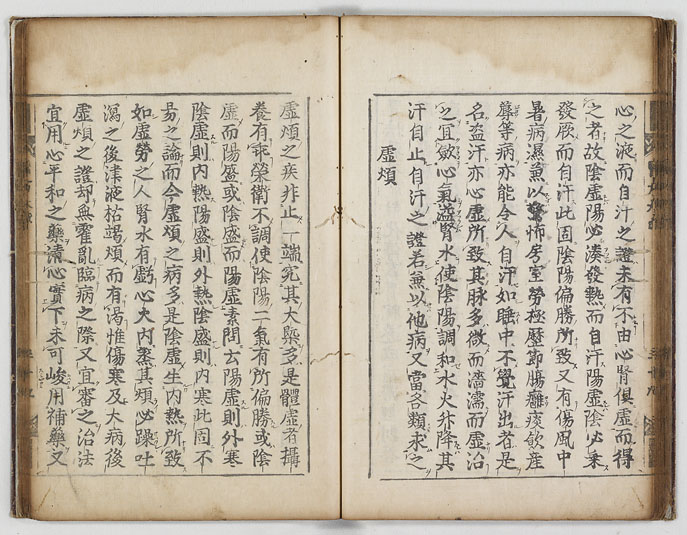 心之液而自汗之證未有不由心腎俱虛而得
之者故陰虛陽必湊發熱而自汗陽虛陰必乘
發厥而自汗此固陰陽偏勝所致又有傷風中
暑病濕兼以驚怖房室勞極歷節腸癰痰飲産
蓐等病亦能令人自汗如睡中不覺汗出者是
名盗汗亦心虛所致其脉多微而濡濡而虛治
之宜斂心氣滋腎水使陰陽調和水火升降其
汗自止自汗之證若兼以他病又當各類求之
虛煩
虛煩之疾非止一端究其大槩多是體虛者攝
養有乖榮衛不調使陰陽二氣有所偏勝或陰
虛而陽盛或陰盛而陽虛素問云陽虛則外寒
陰虛則内熱陽盛則外熱陰盛則内寒此固不
昜之論而今虛煩之病多是陰虛生内熱所致
如虛勞之人腎水有虧心火内蒸其煩必躁吐
瀉之後津液枯竭煩而有渴惟傷寒及大病後
虛煩之證却無霍亂臨病之際又宜審之治法
宜用心平和之藥清心實下未可峻用補藥又